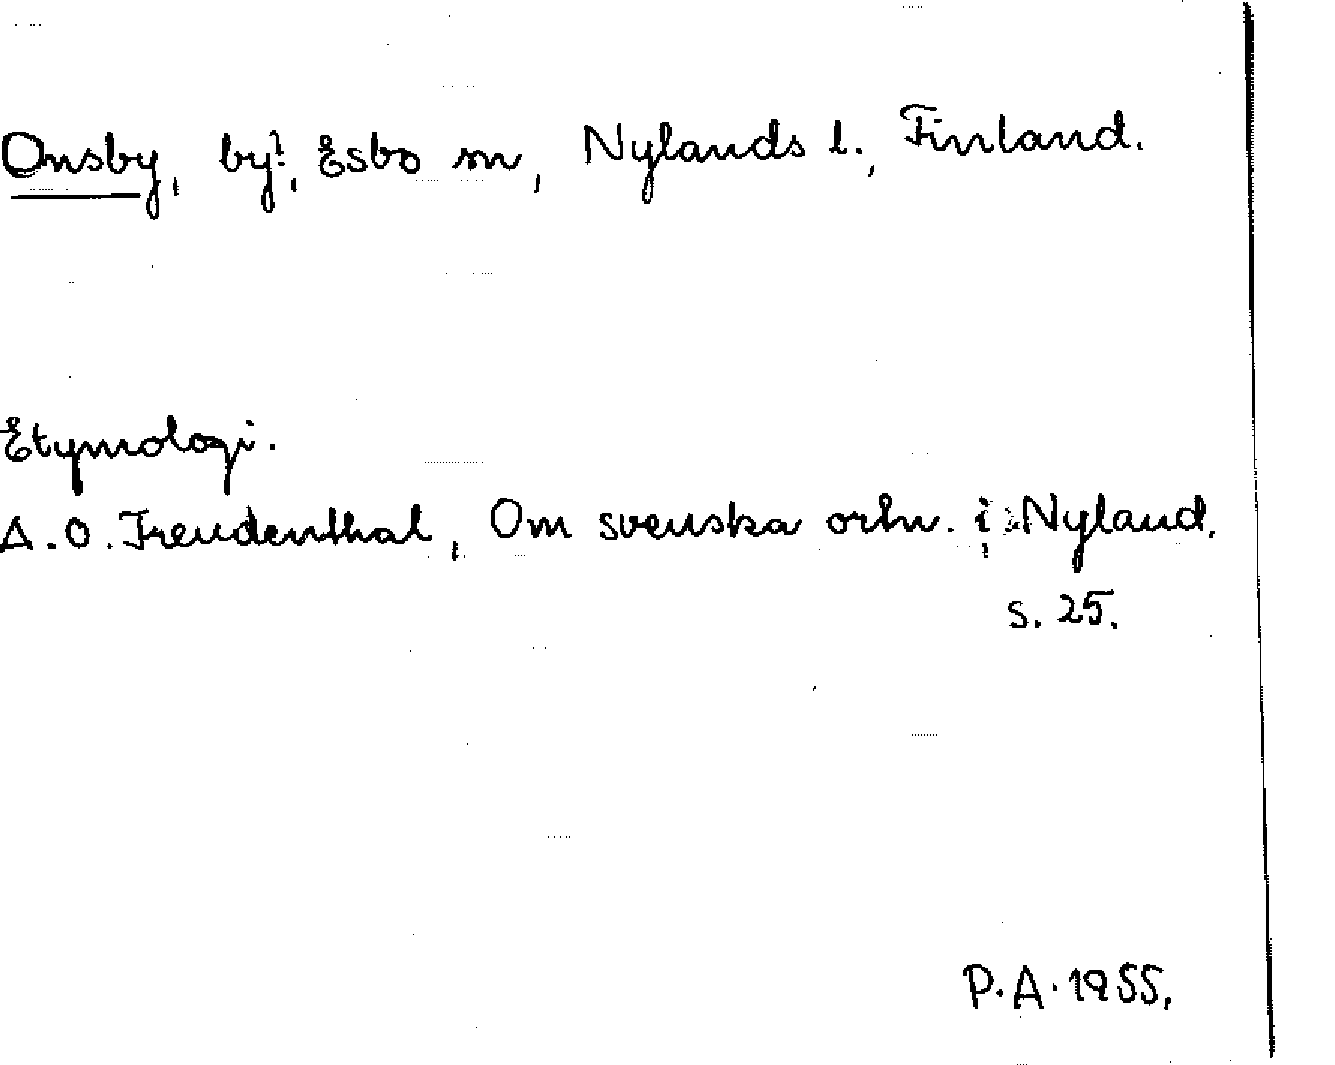 Onsby, by?, Esbo sn, Nylands l., Finland.
Etymologi.
A.O. Freudenthal, Om svenska ortn. i Nyland,
s. 25.
P.A. 1955.